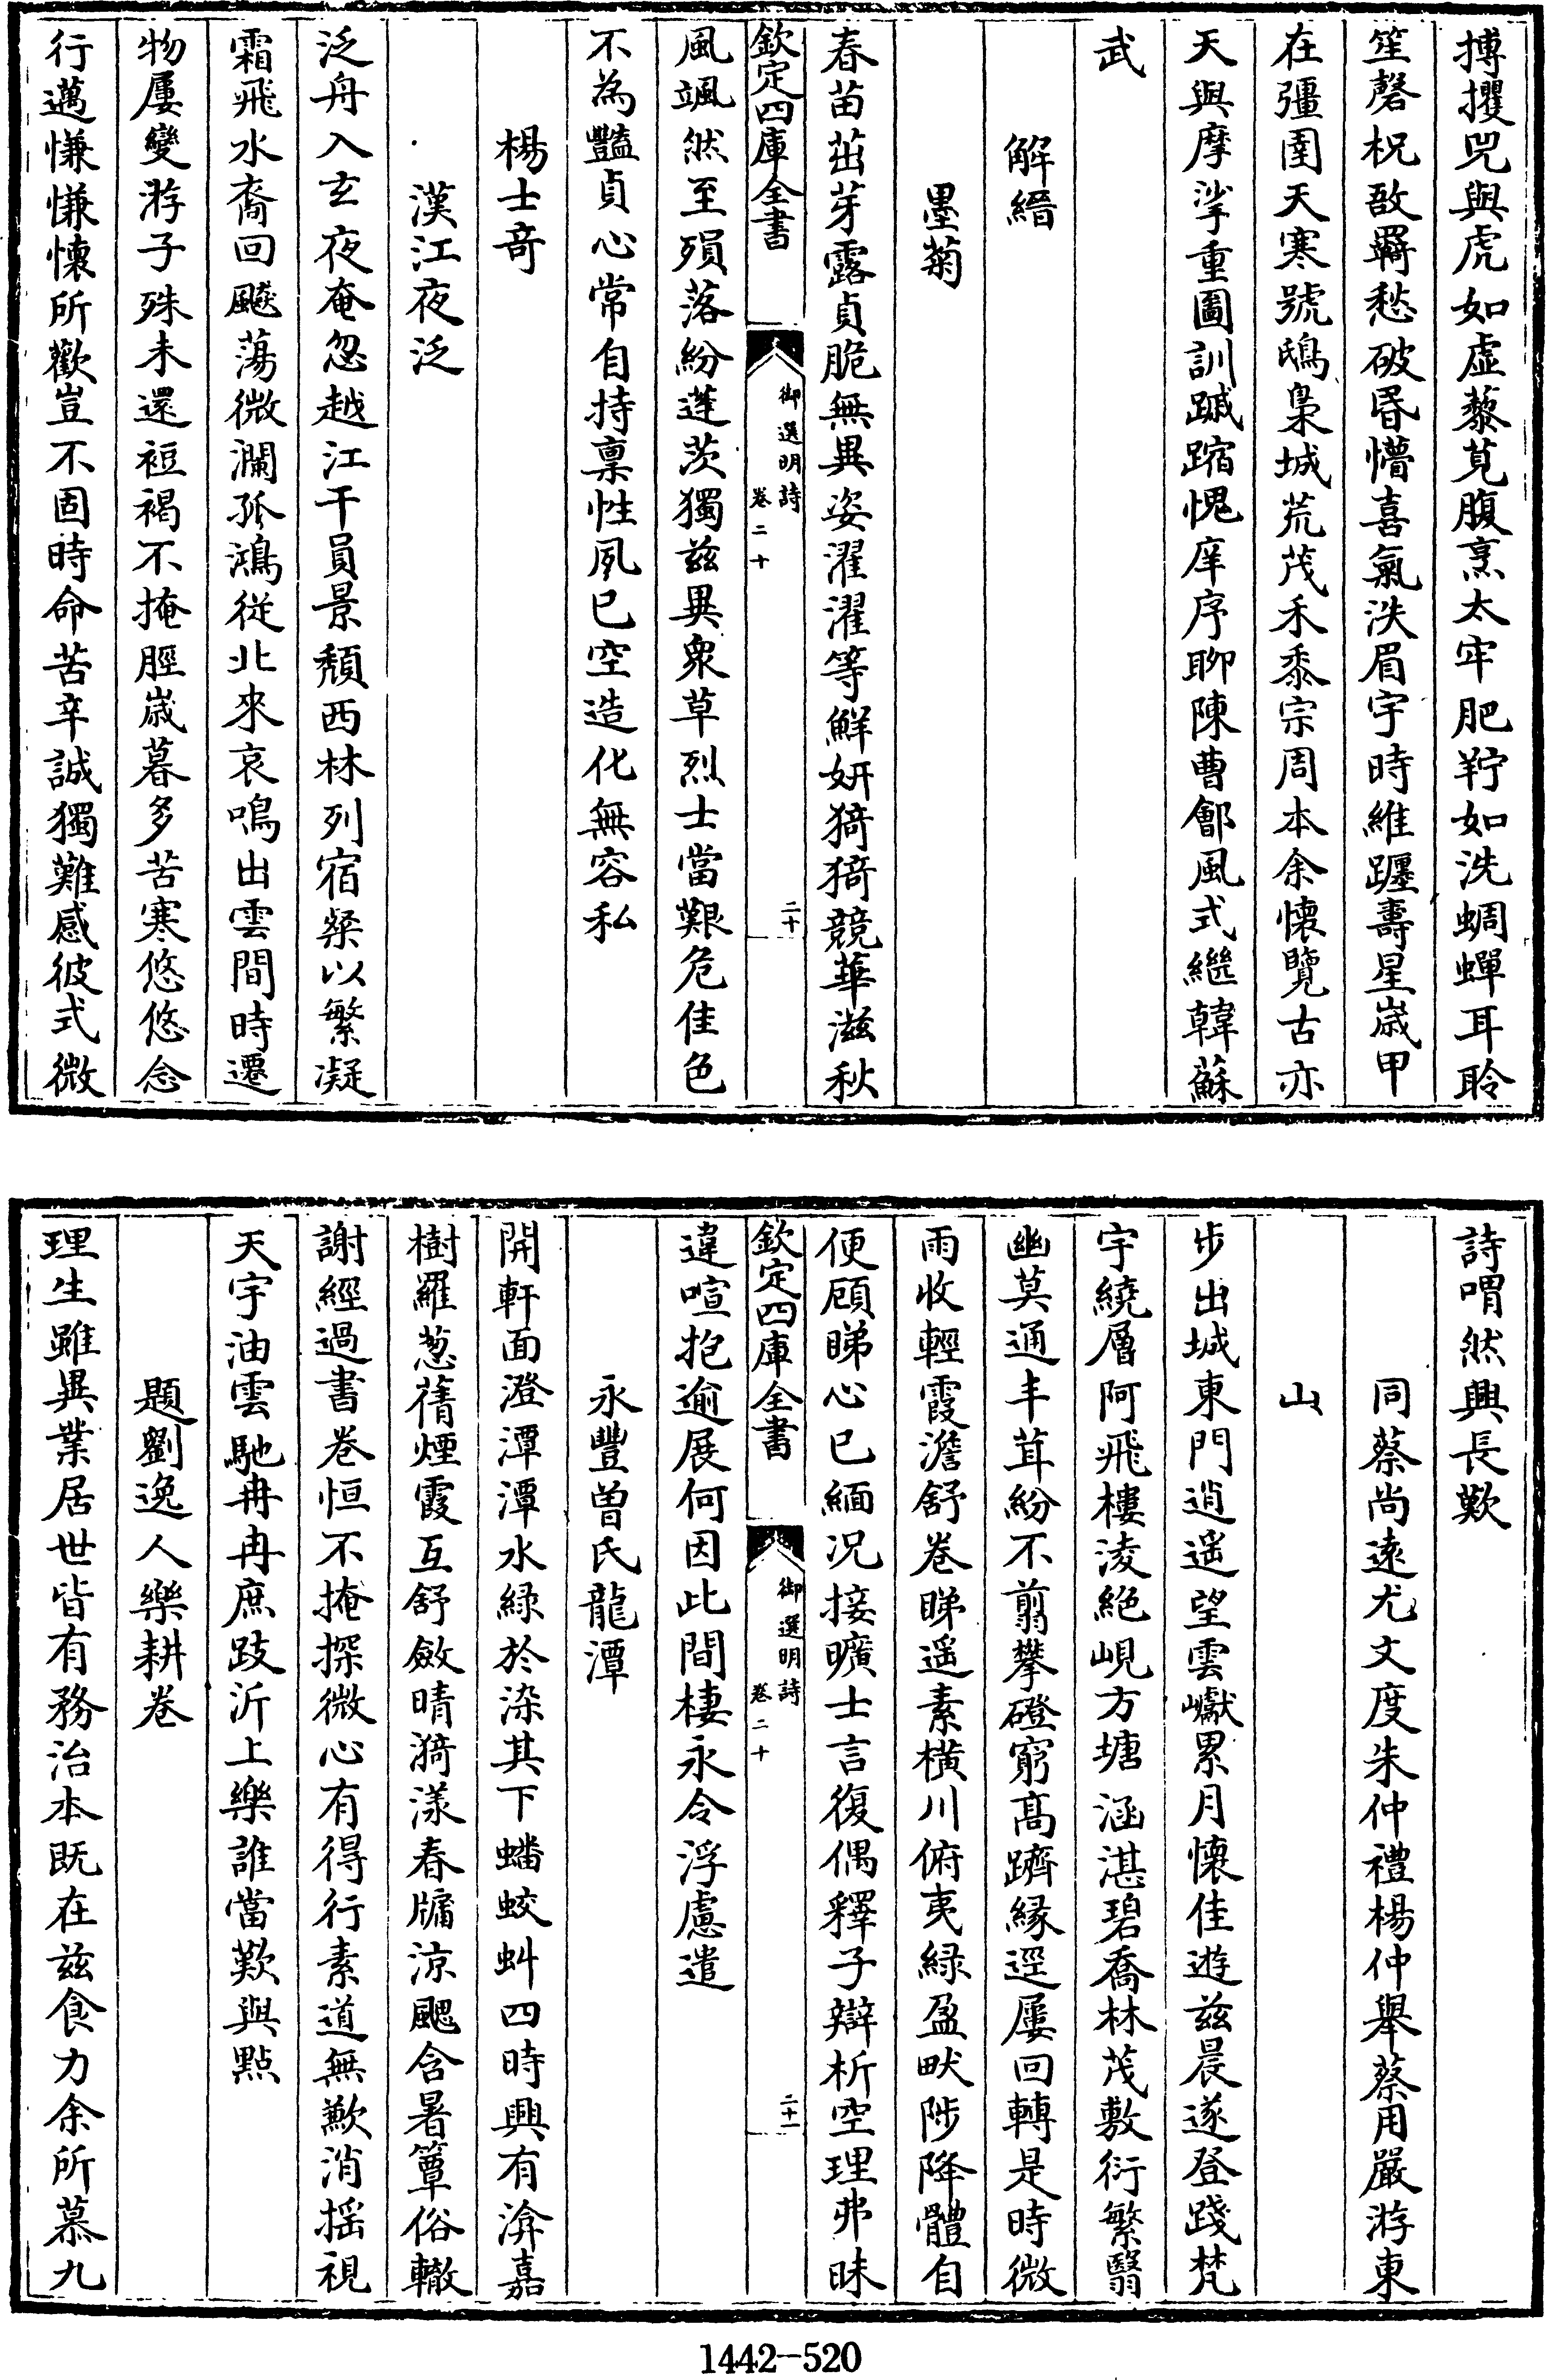 搏攫兕與虎如虛藜莧腹烹太牢肥羜如洗蜩蟬耳聆
笙磬柷敔羇愁破昬懵喜氣泆眉宇時維躔壽星嵗甲
在彊圉天寒號鴟梟城荒茂禾黍宗周本余懷覽古亦
天與摩挲重圖訓蹴踖愧庠序聊陳曹鄶風式繼韓蘇
武
解縉
墨菊
春苗茁芽露貞脆無異姿濯濯等鮮妍猗猗競華滋秋
欽定四庫全書
御選明詩
卷二十
二十
風颯然至殞落紛蓬茨獨兹異衆草烈士當艱危佳色
不為豔貞心常自持稟性夙已空造化無容私
楊士竒
漢江夜泛
泛舟入玄夜奄忽越江干員景頹西林列宿粲以繁凝
霜飛水裔回飇蕩微瀾孤鴻從北來哀鳴出雲間時遷
物屢變游子殊未還裋褐不掩脛嵗暮多苦寒悠悠念
行邁慊慊懷所歡豈不固時命苦辛誠獨難感彼式微
詩喟然興長歎
同蔡尚逺尤文度朱仲禮楊仲舉蔡用嚴游東
山
步出城東門逍遥望雲巘累月懷佳遊兹晨遂登踐梵
宇繞層阿飛樓淩絶峴方塘涵湛碧喬林茂敷衍繁翳
幽莫通丰茸紛不翦攀磴窮髙躋緣逕屢回轉是時微
雨收輕霞澹舒卷睇遥素横川俯夷緑盈畎陟降體自
便顧睇心已緬况接曠士言復偶釋子辯析空理弗昧
欽定四庫全書
御選明詩
卷二十
二十一
違喧抱逾展何因此間棲永令浮慮遣
永豐曾氏龍潭
開軒面澄潭潭水緑於染其下蟠蛟虯四時興有渰嘉
樹羅葱蒨煙霞互舒斂晴漪漾春牖涼颸含暑簟俗轍
謝經過書卷恒不掩探微心有得行素道無歉消摇視
天宇油雲馳冉冉庶跂沂上樂誰當歎與點
題劉逸人樂耕卷
理生雖異業居世皆有務治本既在兹食力余所慕九
1442-520